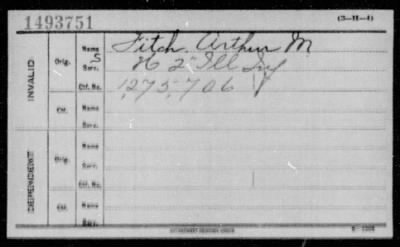 1493751 (3-H-4)
INVALID Orig. Name Fitch, Arthur M
S Serv. H 2 Ill Inf
Ctf. No. 1275706
Ctf. Name
Serv.
DEPENDENT Orig. Name
Serv.
Ctf. No.
Ctf. Name
Serv.